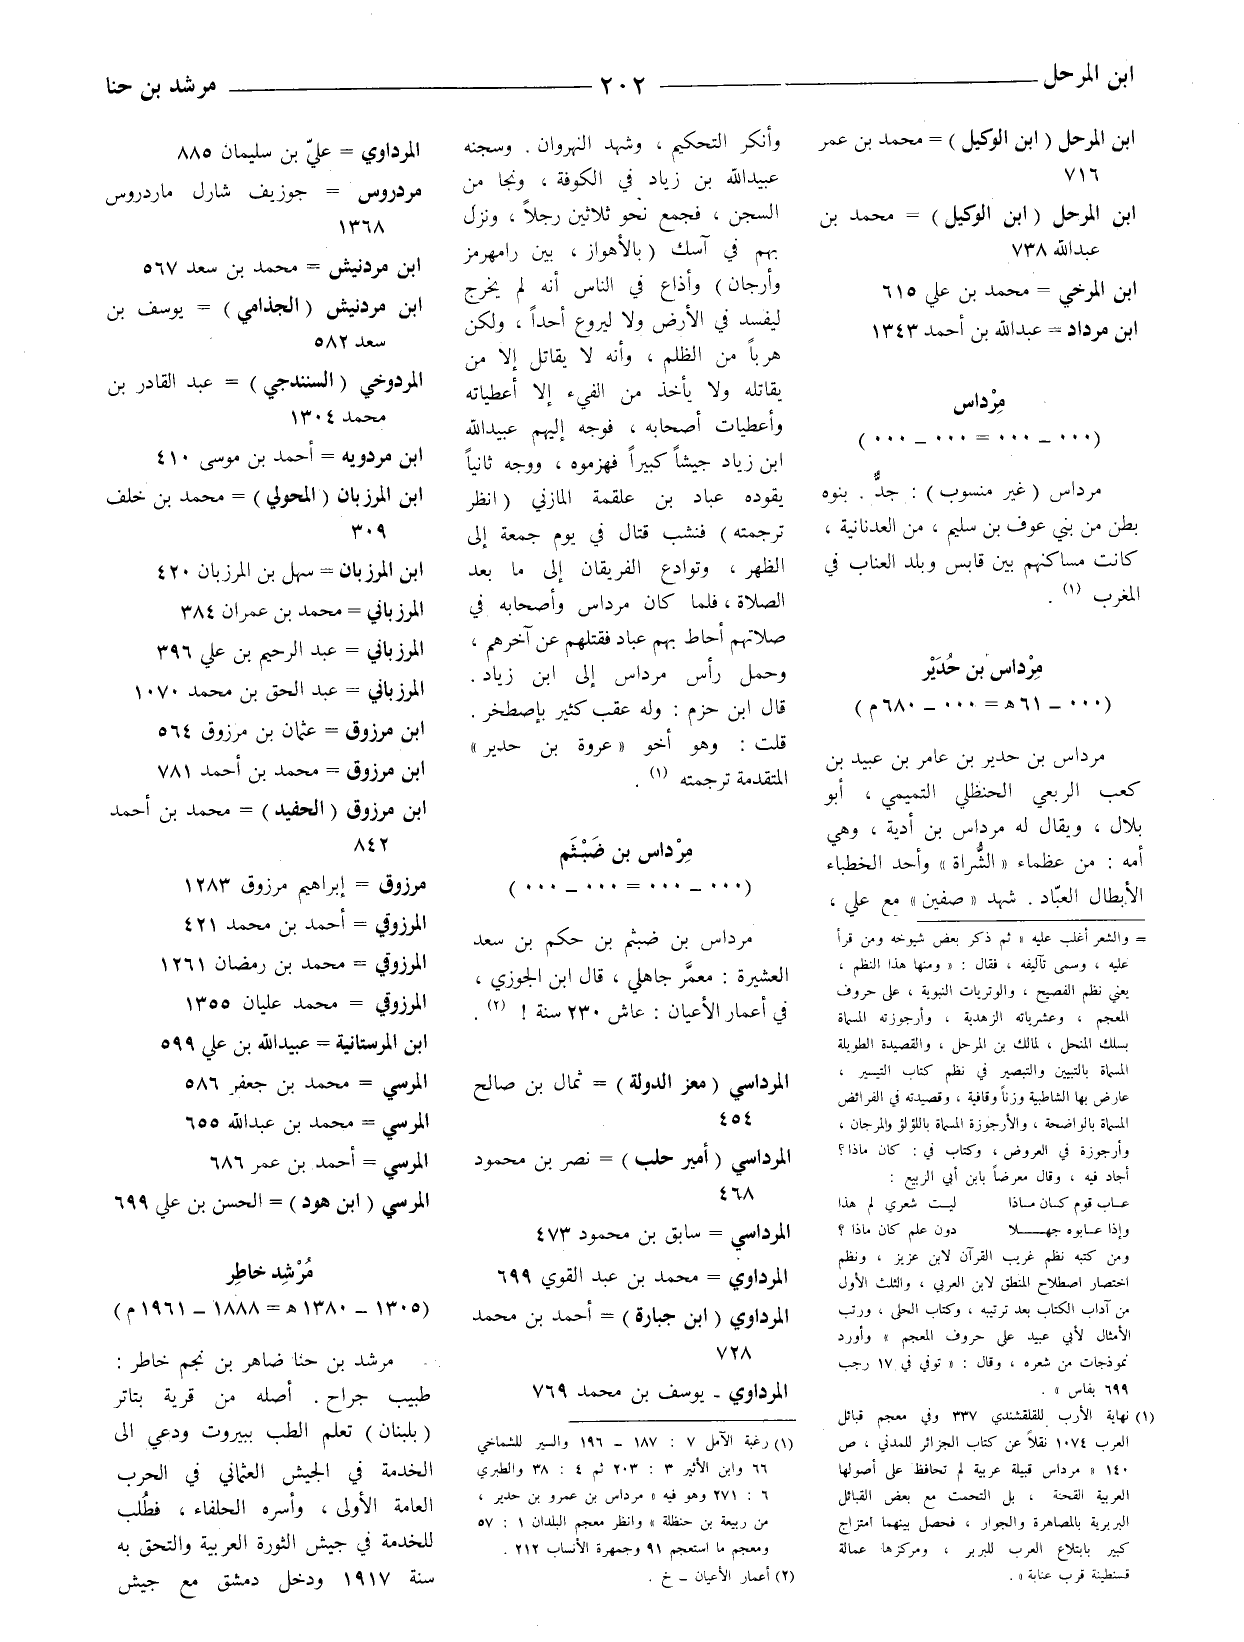 ابن المرحل ٢٠٢ مرشد بن حنا
ابن المرحل ( ابن الوكيل ) = محمد بن عمر
٧١٦
ابن المرحل ( ابن الوكيل ) = محمد بن
عبدالله ٧٣٨
ابن المرخي = محمد بن علي ٦١٥
ابن مرداد = عبدالله بن أحمد ١٣٤٣
مِرْداس
( ٠٠٠ ــ ٠٠٠ = ٠٠٠ ــ ٠٠٠ )
مرداس ( غير منسوب ) : جدٌّ . بنوه
بطن من بني عوف بن سليم ، من العدنانية ،
كانت مساكنهم بين قابس وبلد العناب في
المغرب (١) .
مِرْداس بن حُدَيْر
( ٠٠٠ ــ ٦١ ه = ٠٠٠ ــ ٦٨٠ م )
مرداس بن حدير بن عامر بن عبيد بن
كعب الربعي الحنظلي التميمي ، أبو
بلال ، ويقال له مرداس بن أدية ، وهي
أمه : من عظماء « الشُّراة » وأحد الخطباء
الأبطال العبّاد . شهد « صفين » مع علي ،
= والشعر أغلب عليه » ثم ذكر بعض شيوخه ومن قرأ
عليه ، وسمى تآليفه ، فقال : « ومنها هذا النظم ،
يعني نظم الفصيح ، والوتريات النبوية ، على حروف
المعجم ، وعشرياته الزهدية ، وأرجوزته المسماة
بسلك المنخل ، لمالك بن المرحل ، والقصيدة الطويلة
المسماة بالتبيين والتبصير في نظم كتاب التيسير ،
عارض بها الشاطبية وزناً وقافية ، وقصيدته في الفرائض
المسماة بالواضحة ، والأرجوزة المسماة باللؤلؤ والمرجان ،
وأرجوزة في العروض ، وكتاب في : كان ماذا ؟
أجاد فيه ، وقال معرضاً بابن أبي الربيع :
عــاب قوم كــان مــاذا ليــت شعري لم هذا
وإذا عــابوه جهــــلا دون علم كان ماذا ؟
ومن كتبه نظم غريب القرآن لابن عزيز ، ونظم
اختصار اصطلاح المنطق لابن العربي ، والثلث الأول
من آداب الكتاب بعد ترتيبه ، وكتاب الحلى ، ورتب
الأمثال لأبي عبيد على حروف المعجم » وأورد
نموذجات من شعره ، وقال : « توفي في ١٧ رجب
٦٩٩ بفاس » .
(١) نهاية الأرب للقلقشندي ٣٣٧ وفي معجم قبائل
العرب ١٠٧٤ نقلاً عن كتاب الجزائر للمدني ، ص
١٤٠ « مرداس قبيلة عربية لم تحافظ على أصولها
العربية القحنة ، بل التحمت مع بعض القبائل
البربرية بالمصاهرة والجوار ، فحصل بينهما امتزاج
كبير بابتلاع العرب للبربر ، ومركزها عمالة
قسنطينة قرب عنابة » .
وأنكر التحكيم ، وشهد النهروان . وسجنه
عبيدالله بن زياد في الكوفة ، ونجا من
السجن ، فجمع نحو ثلاثين رجلاً ، ونزل
بهم في آسك ( بالأهواز ، بين رامهرمز
وأرجان ) وأذاع في الناس أنه لم يخرج
ليفسد في الأرض ولا ليروع أحداً ، ولكن
هرباً من الظلم ، وأنه لا يقاتل إلا من
يقاتله ولا يأخذ من الفيء إلا أعطياته
وأعطيات أصحابه ، فوجه إليهم عبيدالله
ابن زياد جيشاً كبيراً فهزموه ، ووجه ثانياً
يقوده عباد بن علقمة المازني ( انظر
ترجمته ) فنشب قتال في يوم جمعة إلى
الظهر ، وتوادع الفريقان إلى ما بعد
الصلاة ، فلما كان مرداس وأصحابه في
صلاتهم أحاط بهم عباد فقتلهم عن آخرهم ،
وحمل رأس مرداس إلى ابن زياد .
قال ابن حزم : وله عقب كثير بإصطخر .
قلت : وهو أخو « عروة بن حدير »
المتقدمة ترجمته (١) .
مِرْداس بن ضَبْثَم
( ٠٠٠ ــ ٠٠٠ = ٠٠٠ ــ ٠٠٠ )
مرداس بن ضبثم بن حكم بن سعد
العشيرة : معمَّر جاهلي ، قال ابن الجوزي ،
في أعمار الأعيان : عاش ٢٣٠ سنة ! (٢) .
المرداسي ( معز الدولة ) = ثمال بن صالح
٤٥٤
المرداسي ( أمير حلب ) = نصر بن محمود
٤٦٨
المرداسي = سابق بن محمود ٤٧٣
المرداوي = محمد بن عبد القوي ٦٩٩
المرداوي ( ابن جبارة ) = أحمد بن محمد
٧٢٨
المرداوي ـ يوسف بن محمد ٧٦٩
(١) رغبة الآمل ٧ : ١٨٧ ــ ١٩٦ والسير للشماخي
٦٦ وابن الأثير ٣ : ٢٠٣ ثم ٤ : ٣٨ والطبري
٦ : ٢٧١ وهو فيه « مرداس بن عمرو بن حدير ،
من ربيعة بن حنظلة » وانظر معجم البلدان ١ : ٥٧
ومعجم ما استعجم ٩١ وجمهرة الأنساب ٢١٢ .
(٢) أعمار الأعيان ــ خ .
المرداوي = عليّ بن سليمان ٨٨٥
مردروس = جوزيف شارل ماردروس
١٣٦٨
ابن مردنيش = محمد بن سعد ٥٦٧
ابن مردنيش ( الجذامي ) = يوسف بن
سعد ٥٨٢
المردوخي ( السنندجي ) = عبد القادر بن
محمد ١٣٠٤
ابن مردويه = أحمد بن موسى ٤١٠
ابن المرزبان ( المحولي ) = محمد بن خلف
٣٠٩
ابن المرزبان = سهل بن المرزبان ٤٢٠
المرزباني = محمد بن عمران ٣٨٤
المرزباني = عبد الرحيم بن علي ٣٩٦
المرزباني = عبد الحق بن محمد ١٠٧٠
ابن مرزوق = عثمان بن مرزوق ٥٦٤
ابن مرزوق = محمد بن أحمد ٧٨١
ابن مرزوق ( الحفيد ) = محمد بن أحمد
٨٤٢
مرزوق = إبراهيم مرزوق ١٢٨٣
المرزوقي = أحمد بن محمد ٤٢١
المرزوقي = محمد بن رمضان ١٢٦١
المرزوقي = محمد عليان ١٣٥٥
ابن المرستانية = عبيدالله بن علي ٥٩٩
المرسي = محمد بن جعفر ٥٨٦
المرسي = محمد بن عبدالله ٦٥٥
المرسي = أحمد بن عمر ٦٨٦
المرسي ( ابن هود ) = الحسن بن علي ٦٩٩
مُرْشِد خاطِر
( ١٣٠٥ ــ ١٣٨٠ ه = ١٨٨٨ ــ ١٩٦١ م )
مرشد بن حنا ضاهر بن نجم خاطر :
طبيب جراح . أصله من قرية بتاتر
( بلبنان ) تعلم الطب ببيروت ودعي الى
الخدمة في الجيش العثماني في الحرب
العامة الأولى ، وأسره الحلفاء ، فطُلب
للخدمة في جيش الثورة العربية والتحق به
سنة ١٩١٧ ودخل دمشق مع جيش